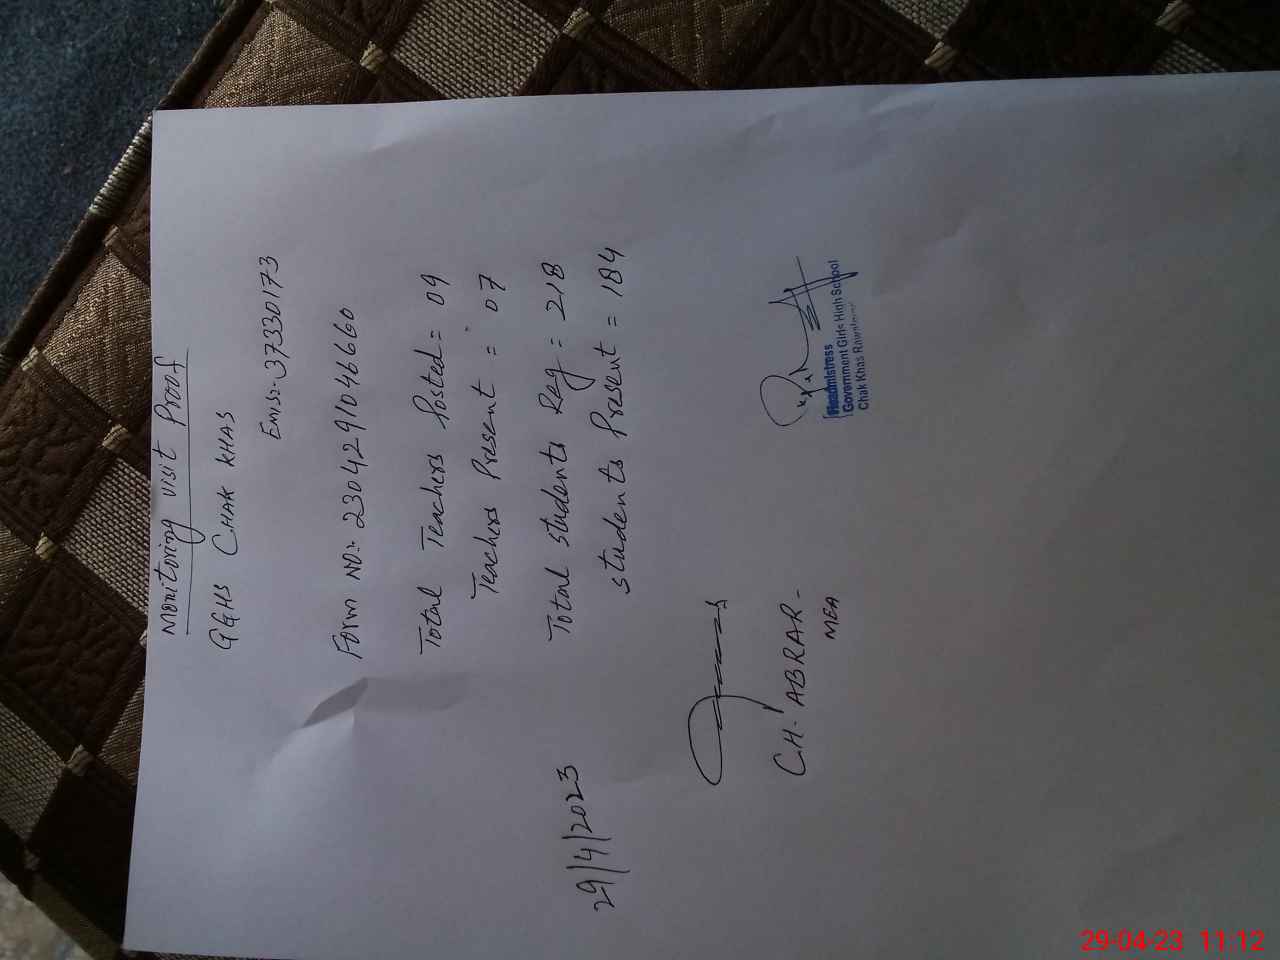 Monitoring visit Proof
GGHS CHAK KHAS
Emis:- 37330173
Form NO:- 2304291046660
Total Teachers Posted = 09
Teachers Present = 07
Total students Reg = 218
students Present = 184
29/4/2023
CH. ABRAR -
MEA
Headmistress
Government Girls High School
Chak Khas
29-04-23 11:12